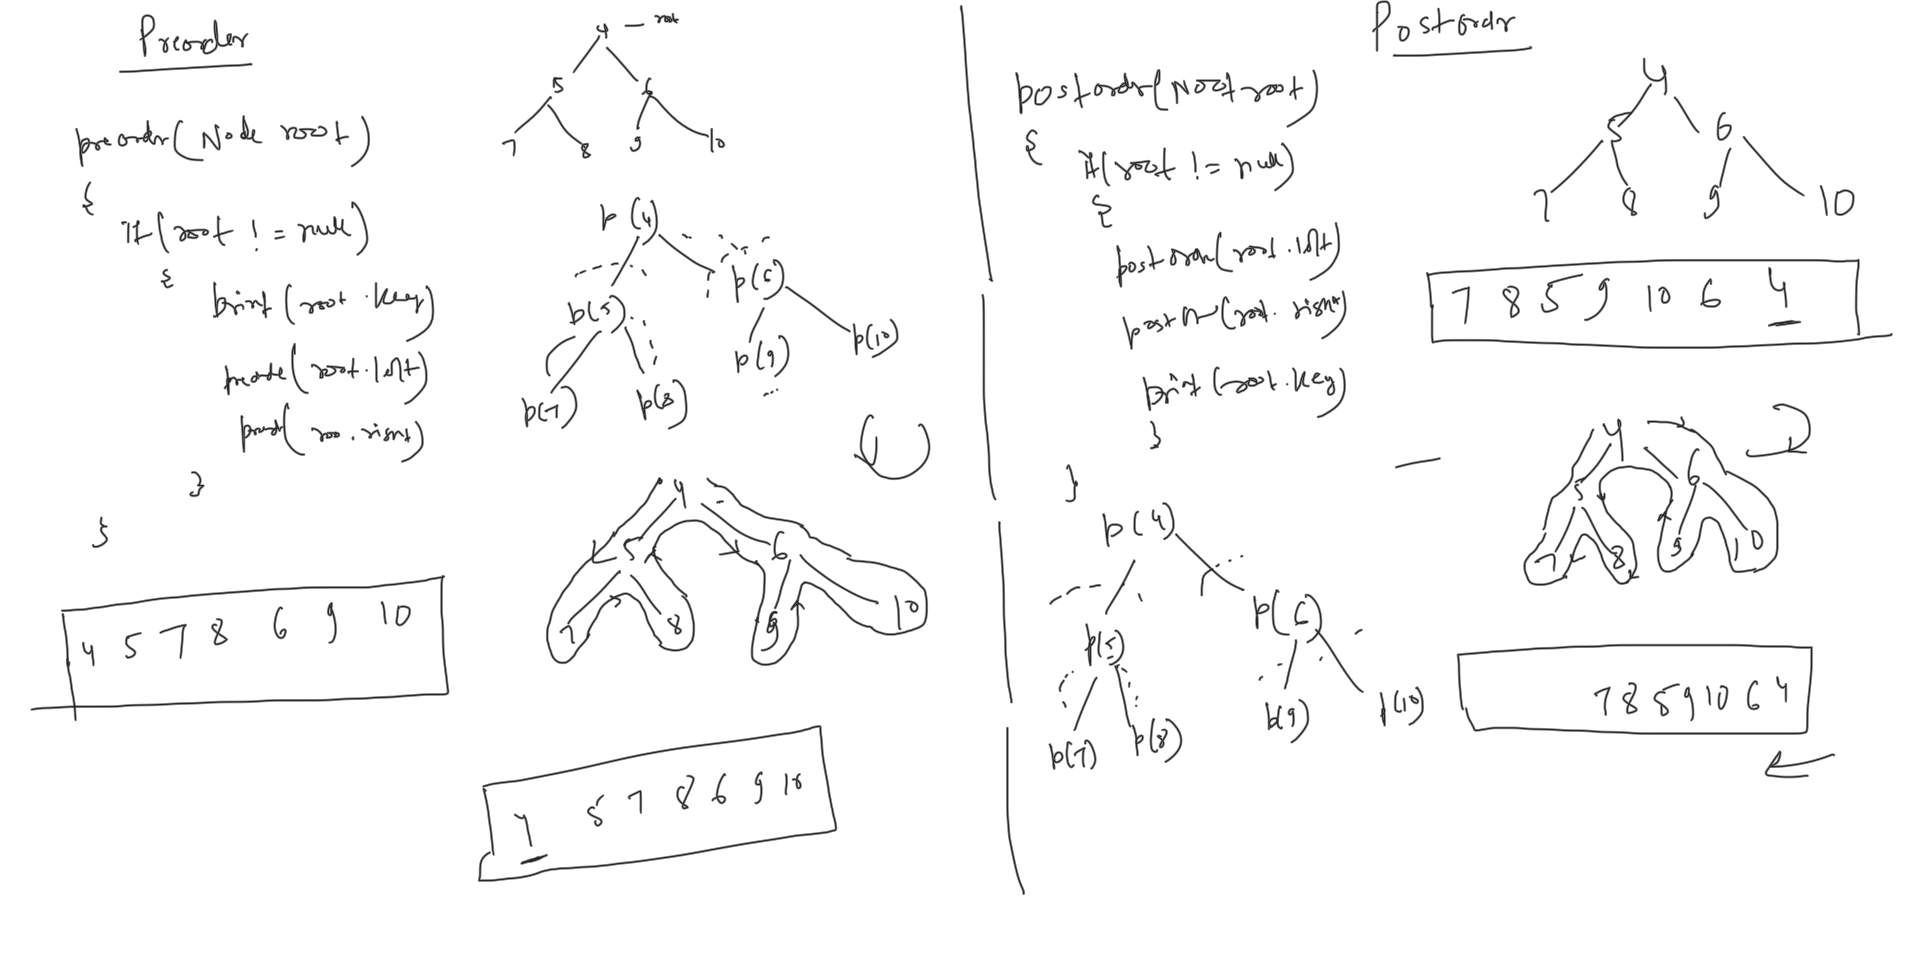 Preorder
preorder(Node root)
{
if(root != null)
{
print(root.key)
preorde(root.left)
(roo.right)
}
}
4 5 7 8 6 9 10
4 — root
5 6
7 8 9 10
p(4)
p(5) p(6)
p(7) p(8) p(9) p(10)
...
4
5 6
7 8 9 10
4 5 7 8 6 9 10
Postordr
postordr(Noot root)
{
if(root != null)
{
(root.left)
(root.right)
print(root.key)
}
}
4
5 6
7 8 9 10
7 8 5 9 10 6 4
4
5 6
7 8 9 10
p(4)
p(5) p(6)
p(7) p(8) p(9) p(10)
7 8 5 9 10 6 4